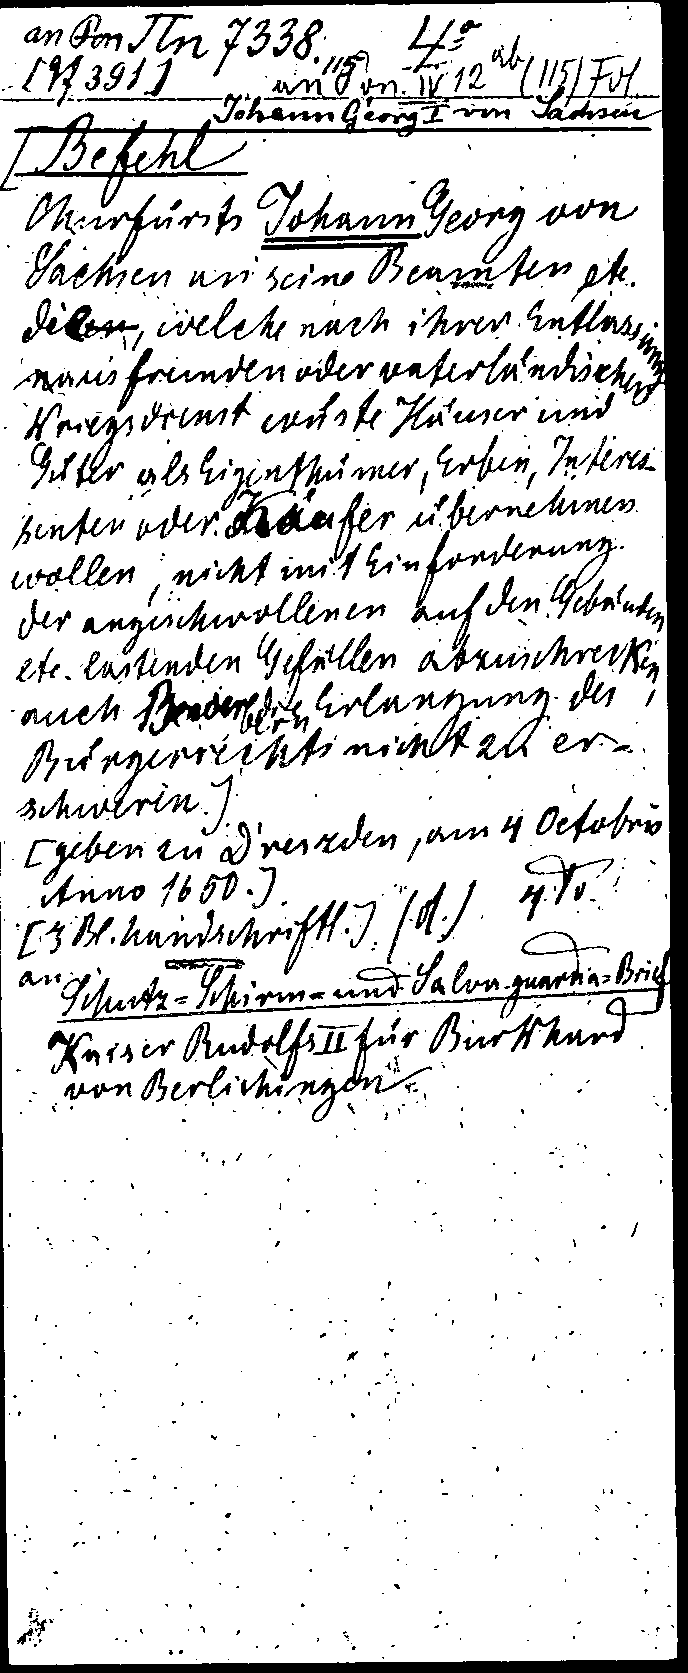 an Pon IIn 7338. 4°
[9J 391] an Pon. IV 12 ab (115) Fol
115
Johann Georg I von Sachsen
[Befehl
Churfürsts Johann Georg von
Sachsen an seine Beamten etc.
die, welche nach ihrer Entlassung
aus fremden oder vaterländischen
Kriegsdienst wüste Häuser und
Güter als Eigenthümer, Erben, Interes-
senten oder Käufer übernehmen
wollen, nicht mit Einforderung
der angeschwollenen auf den Gebäuden
etc. lastenden Gefällen abzuschrecken,
auch die Erlangung des
Bürgerrechts nicht zu er-
schweren.]
[geben zu Dreszden, am 4 Octobris
Anno 1650.]
[3 Bl. handschriftl.] (d.) 4. To.
an
Schutz=Schirm=und Salva guardia=Brief
Kaiser Rudolfs II für Burkhard
von Berlichingen